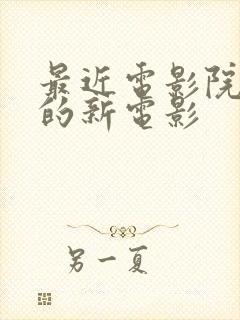 最近电影院
的新电影
另一夏